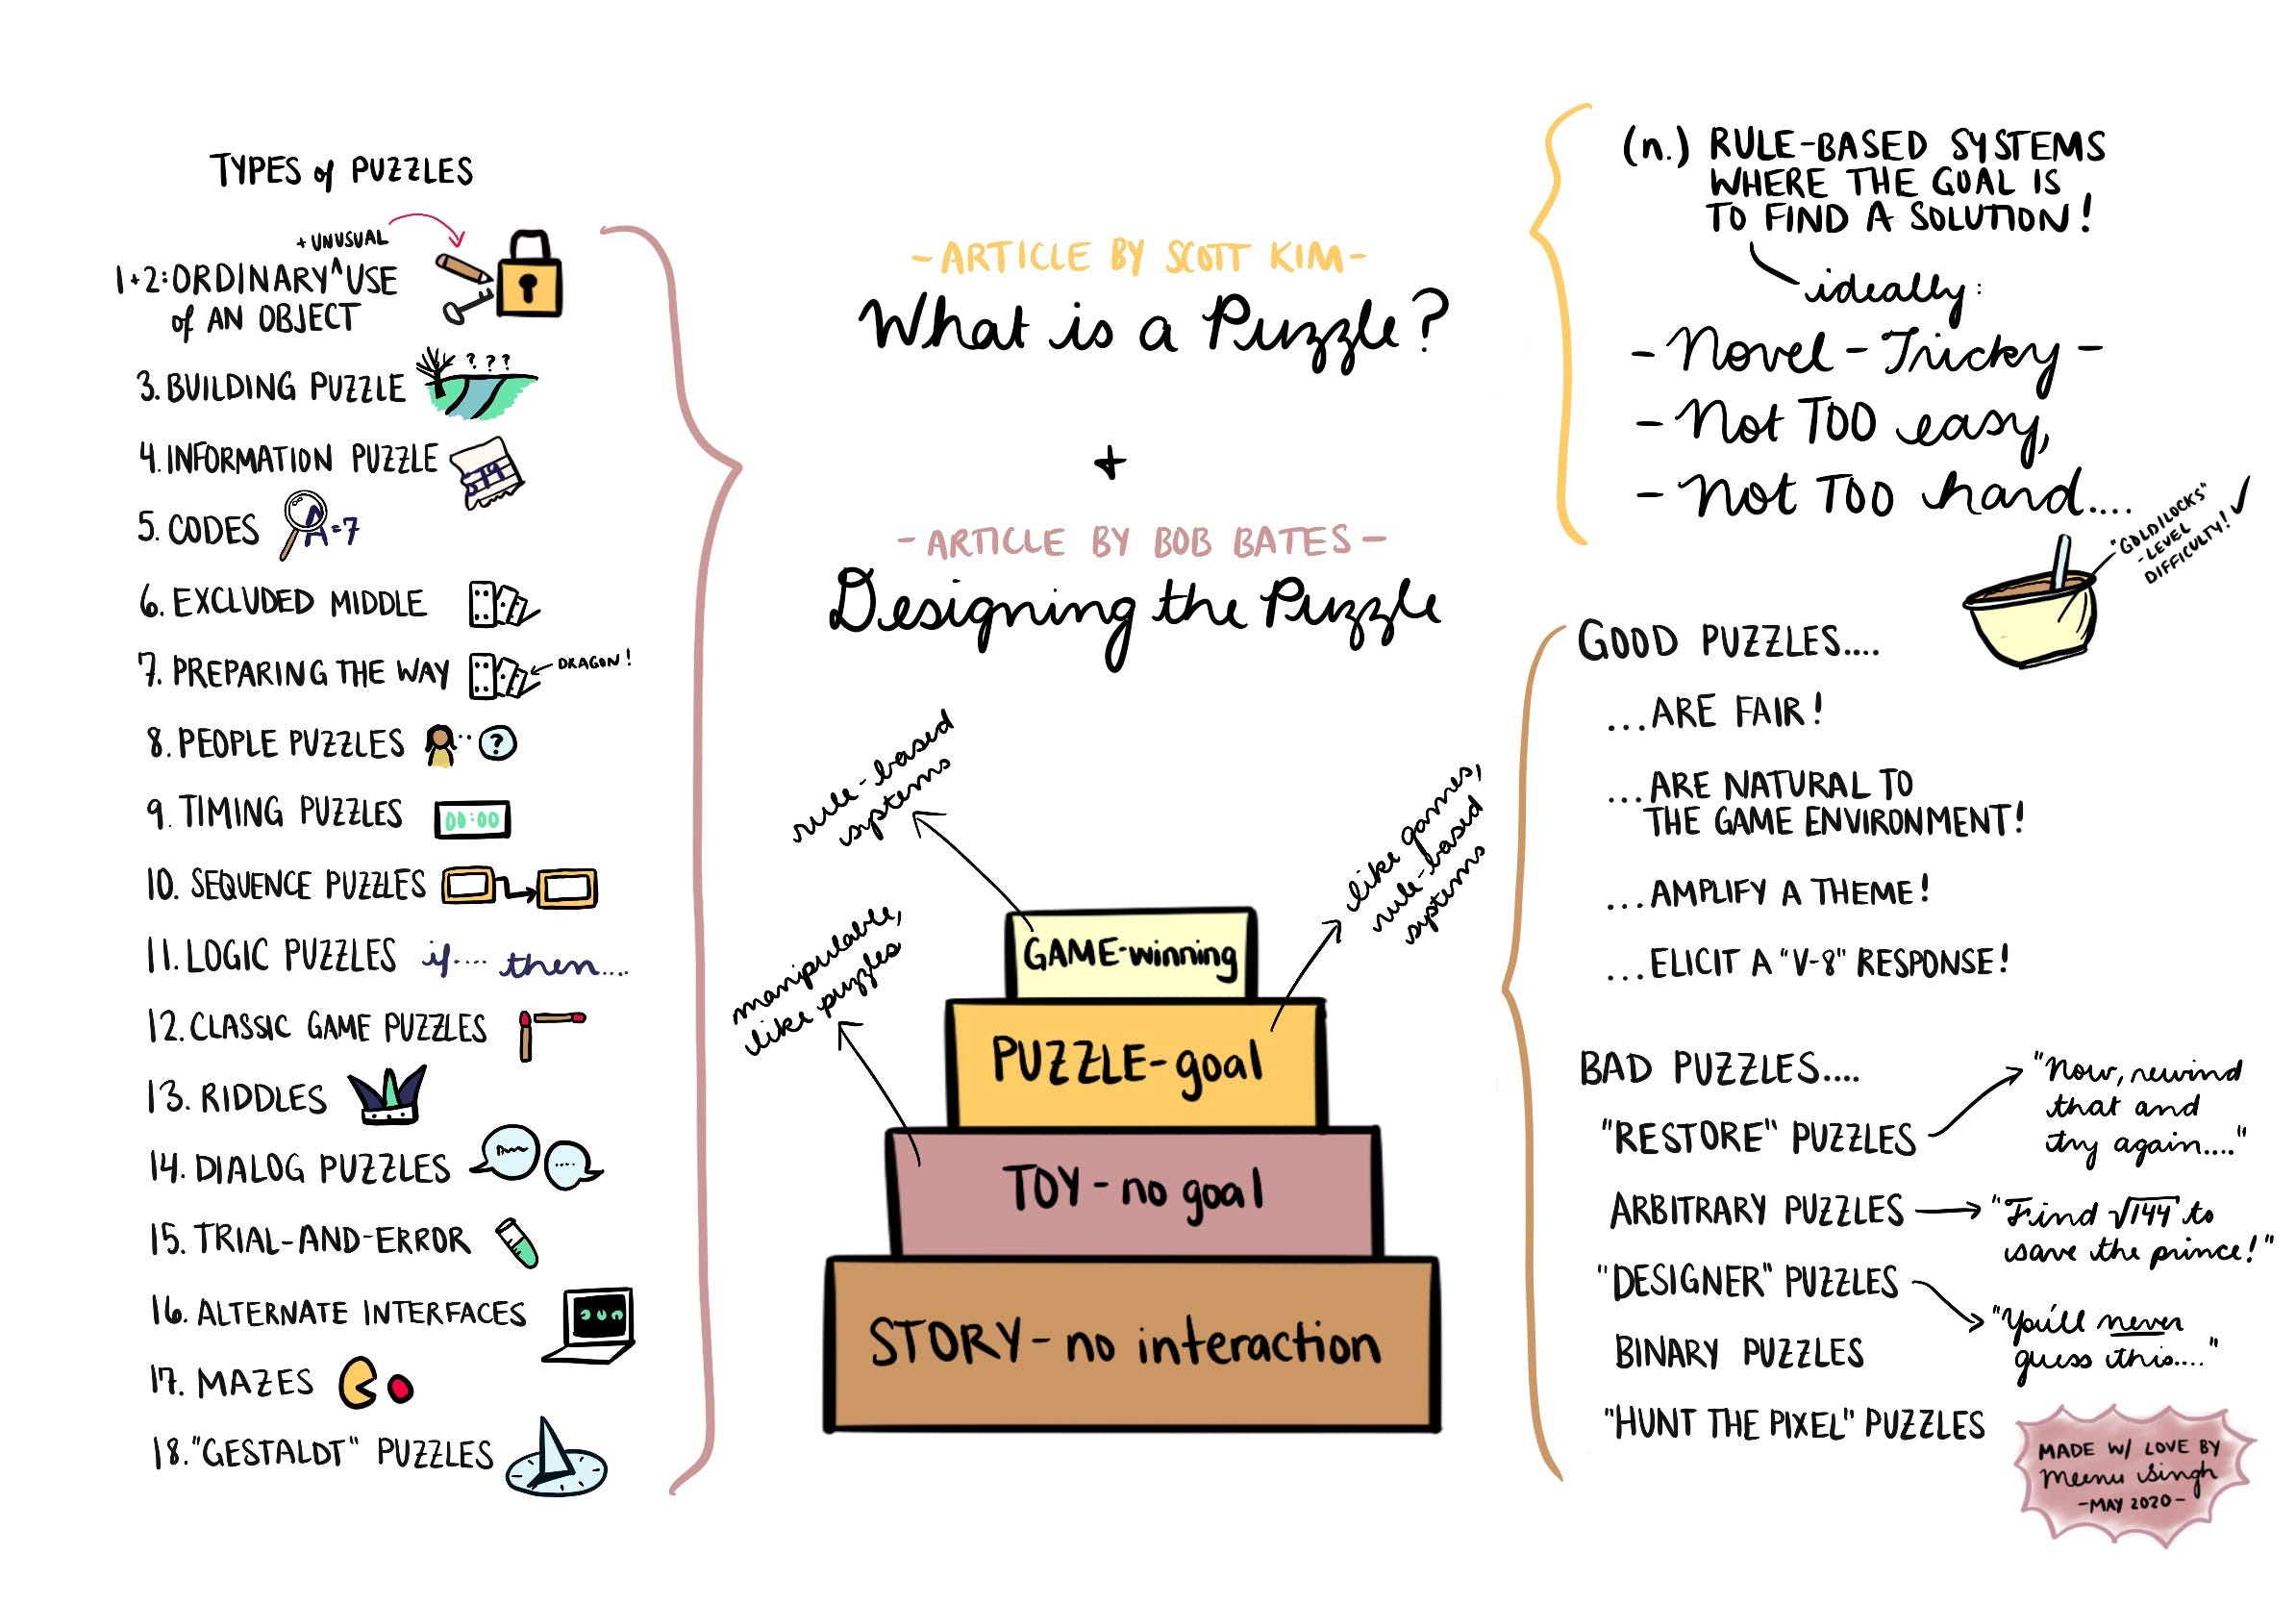 TYPES of PUZZLES
+ UNUSUAL
1+2: ORDINARY ^ USE
of AN OBJECT
3. BUILDING PUZZLE
? ? ?
4. INFORMATION PUZZLE
579
5. CODES
A=7
6. EXCLUDED MIDDLE
7. PREPARING THE WAY
DRAGON!
8. PEOPLE PUZZLES
?
9. TIMING PUZZLES
00:00
10. SEQUENCE PUZZLES
11. LOGIC PUZZLES
if.... then....
12. CLASSIC GAME PUZZLES
13. RIDDLES
14. DIALOG PUZZLES
15. TRIAL-AND-ERROR
16. ALTERNATE INTERFACES
17. MAZES
18. "GESTALDT" PUZZLES
-ARTICLE BY SCOTT KIM-
What is a Puzzle?
+
-ARTICLE BY BOB BATES-
Designing the Puzzle
rule-based
systems
like games,
rule-based
systems
manipulable,
like puzzles
GAME-winning
PUZZLE-goal
TOY-no goal
STORY-no interaction
(n.) RULE-BASED SYSTEMS
WHERE THE GOAL IS
TO FIND A SOLUTION!
ideally:
-Novel-Tricky-
-Not TOO easy,
-Not TOO hard....
"GOLDILOCKS"
-LEVEL
DIFFICULTY!
GOOD PUZZLES....
...ARE FAIR!
...ARE NATURAL TO
THE GAME ENVIRONMENT!
...AMPLIFY A THEME!
...ELICIT A "V-8" RESPONSE!
BAD PUZZLES....
"RESTORE" PUZZLES
"Now, rewind
that and
try again...."
ARBITRARY PUZZLES
"Find √144 to
save the prince!"
"DESIGNER" PUZZLES
"You'll never
guess this...."
BINARY PUZZLES
"HUNT THE PIXEL" PUZZLES
MADE W/ LOVE BY
Meenu Singh
-MAY 2020-